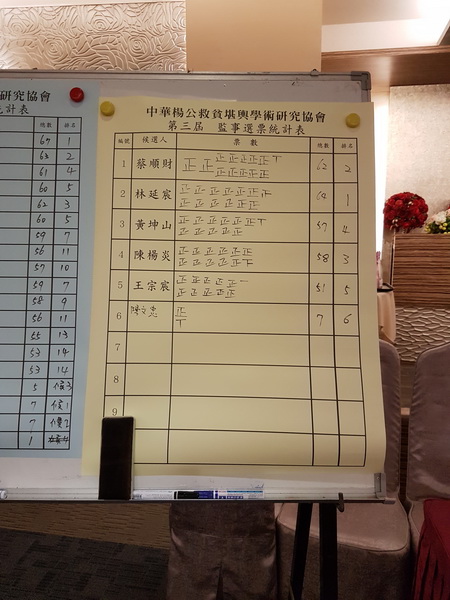 研究協會
計表
總數 排名
67 1
63 2
61 4
60 5
62 3
60 5
59 7
56 11
57 10
59 7
58 9
56 11
55 13
53 14
53 14
5 候3
7 候1
7 候2
1
中華楊公救貧堪輿學術研究協會
第三屆 監事選票統計表
編號 候選人 票數 總數 排名
1 蔡順財 正正正正正正丅 正正正正正 62 2
2 林延宸 正正正正正正丅 正正正正正正 64 1
3 黃坤山 正正正正正正丅 正正正正正 57 4
4 陳楊炎 正正正正正正 正正正正正丅 58 3
5 王宗宸 正正正正正一 正正正正正 51 5
6 正丅 7 6
7
8
9